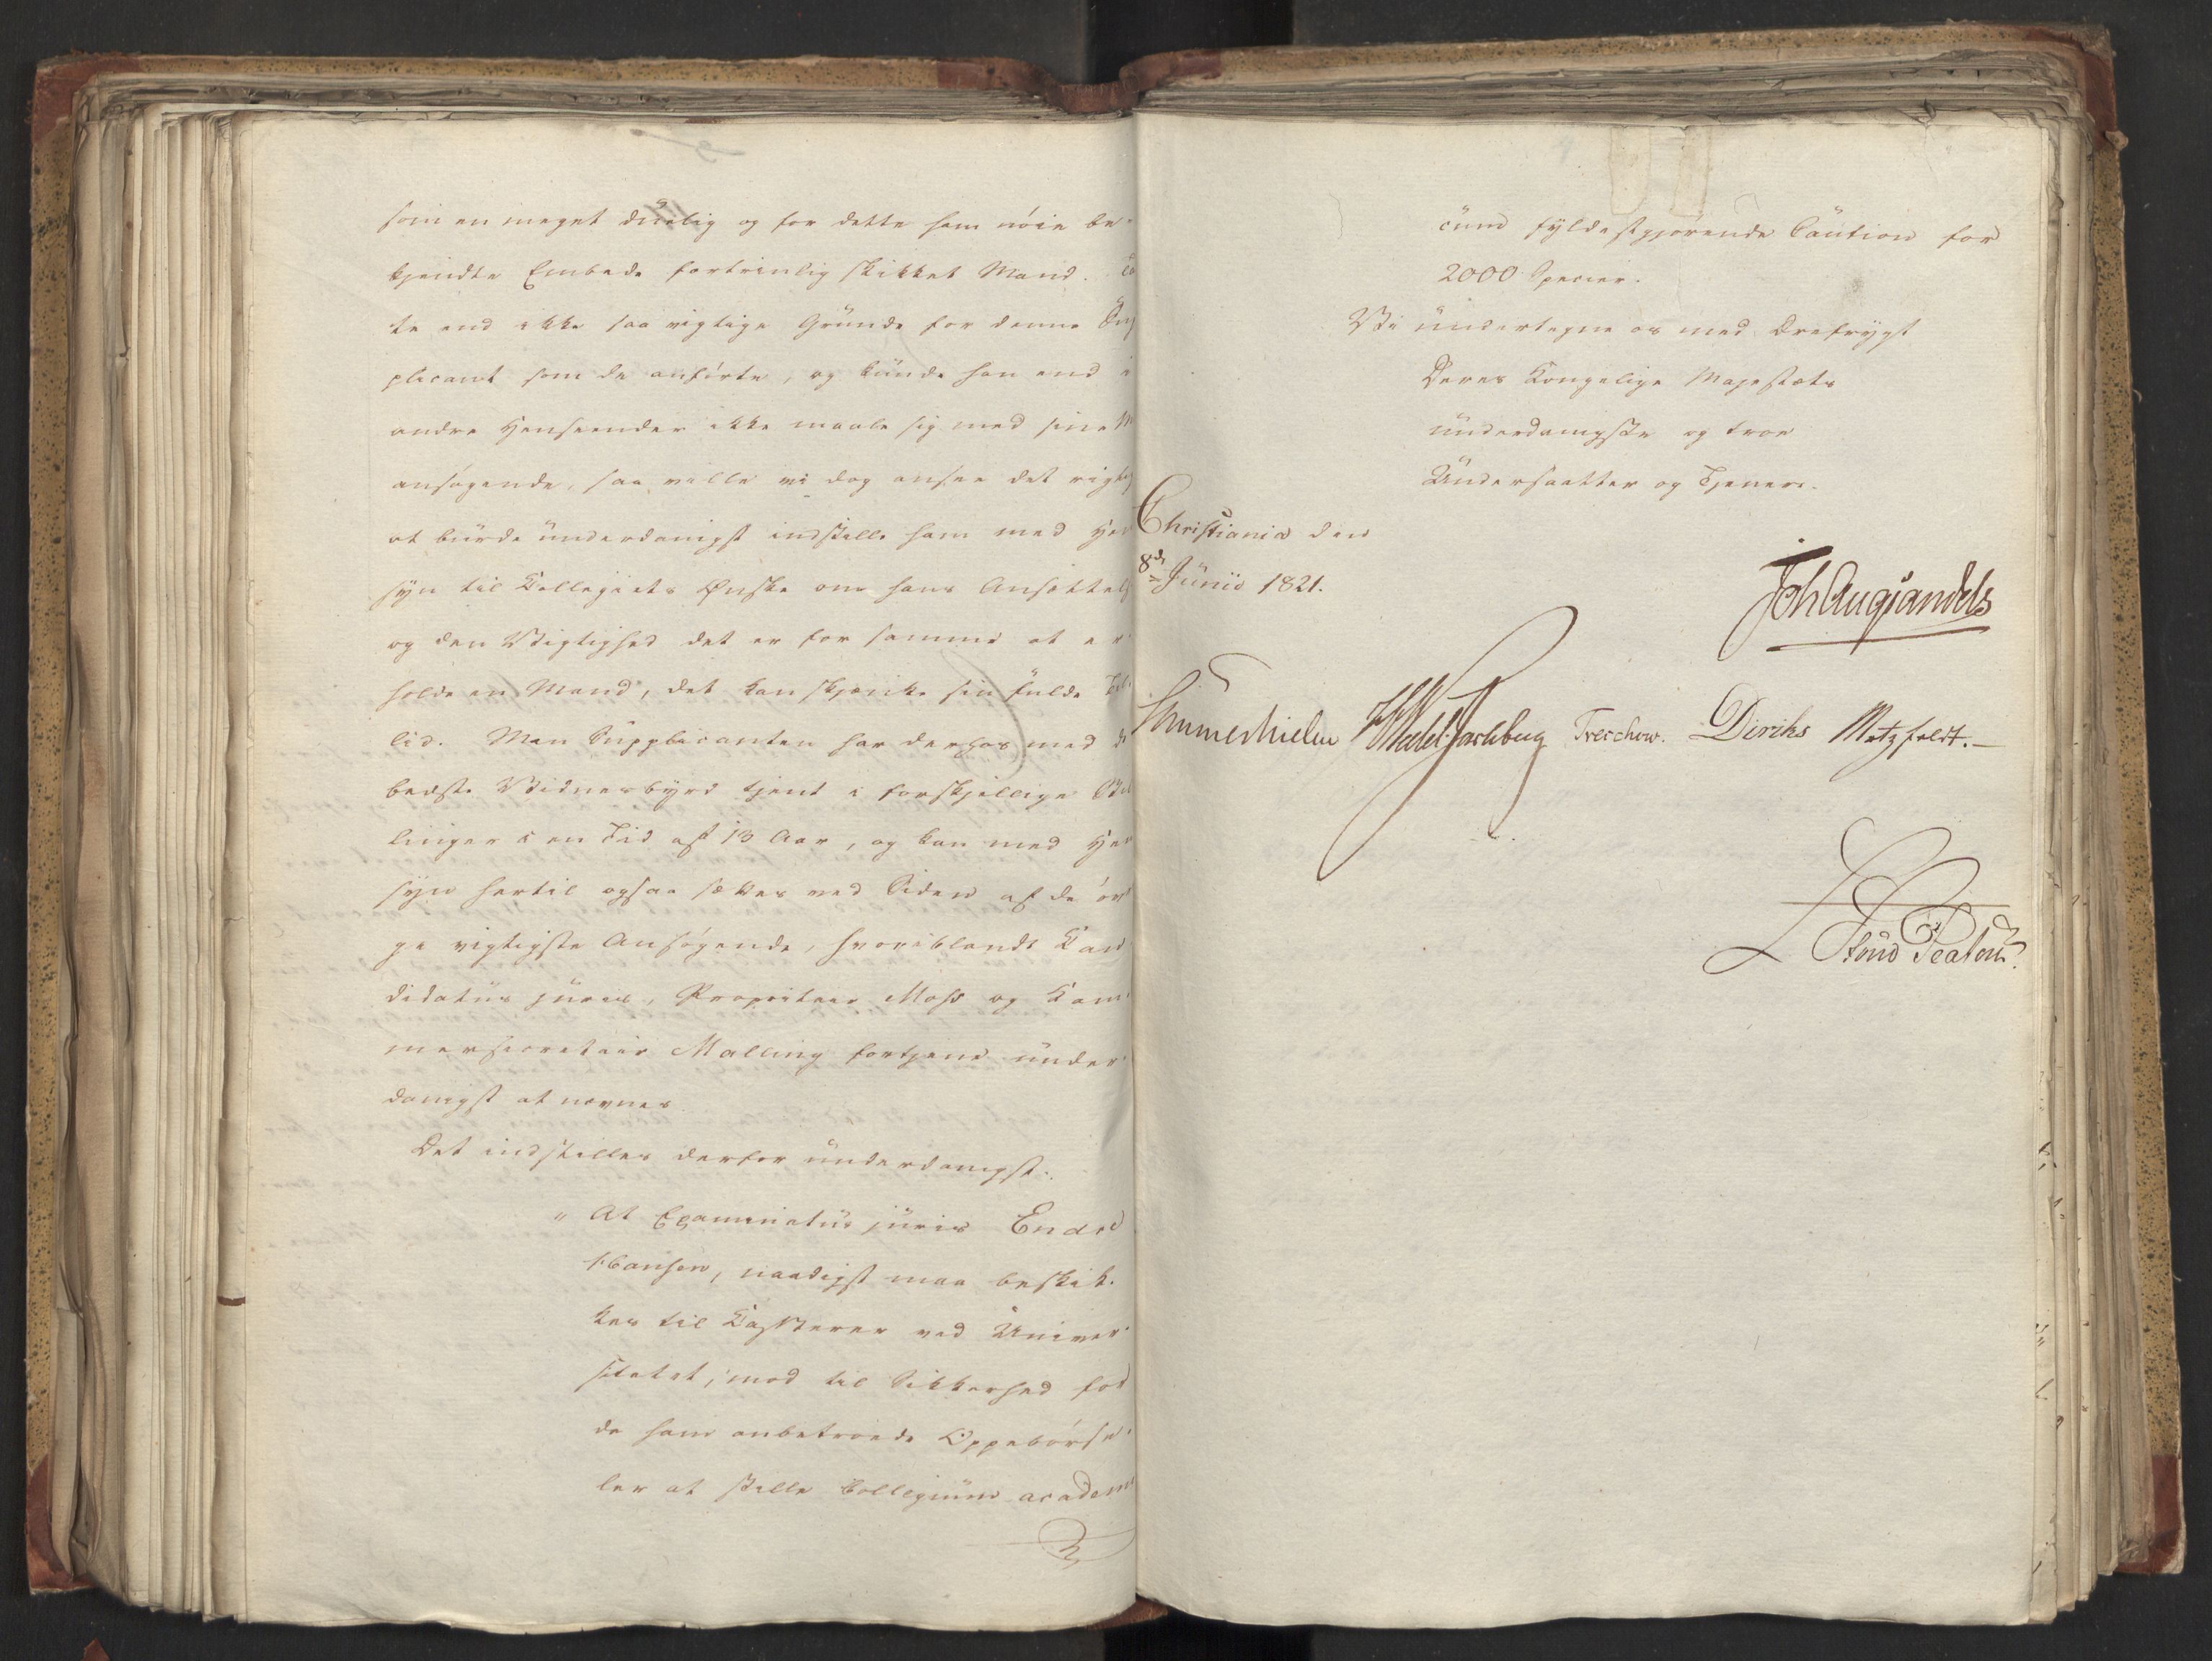 som en meget duelig og for dette ham nöie be-
kjendte Embede fortrinlig skikket Mand. Ta
te end ikke saa vigtige Grunde for denne Sup
plicant som de anförte, og kunde han end i
andre Henseender ikke maale sig med sine M
ansögende, saa ville vi dog ansee det rigtig
at burde underdanigst indstille ham med Hen
syn til Collegiets Ønske om hans Ansættels
og den Vigtighed det er for samme at er
holde en Mand, det kan skjænke sin fulde Til
lid. Men Supplicanten har derhos med de
bedste Vidnesbyrd tjent i forskjellige Stil
linger i en Tid af 13 Aar, og kan med Hen
syn hertil ogsaa sættes ved Siden af de öv
ge vigtigste Ansögende, hvoriblandt Can
didatus juris, Proprietair Moss og Kam
mersecretair Malling fortjene under
danigst at nævnes.
Det indstilles derfor underdanigst:
" At Examinatus juris Endre
Hansen, naadigst maa beskik-
kes til Casserer ved Univer
sitetet, mod til Sikkerhed for
de ham anbetroede Oppebörse
ler at stille Collegium academi
cum fyldestgjørende Caution for
2000 Specier.
Vi undertegne os med Ærefrygt
Deres Kongelige Majestæts
underdanigste og troe
Undersaatter og Tjenere.
Christiania den
8de Junii 1821.
Joh Aug Sandels
Sommerhielm HWedel Jarlsberg Treschow. Diriks Motzfeldt.